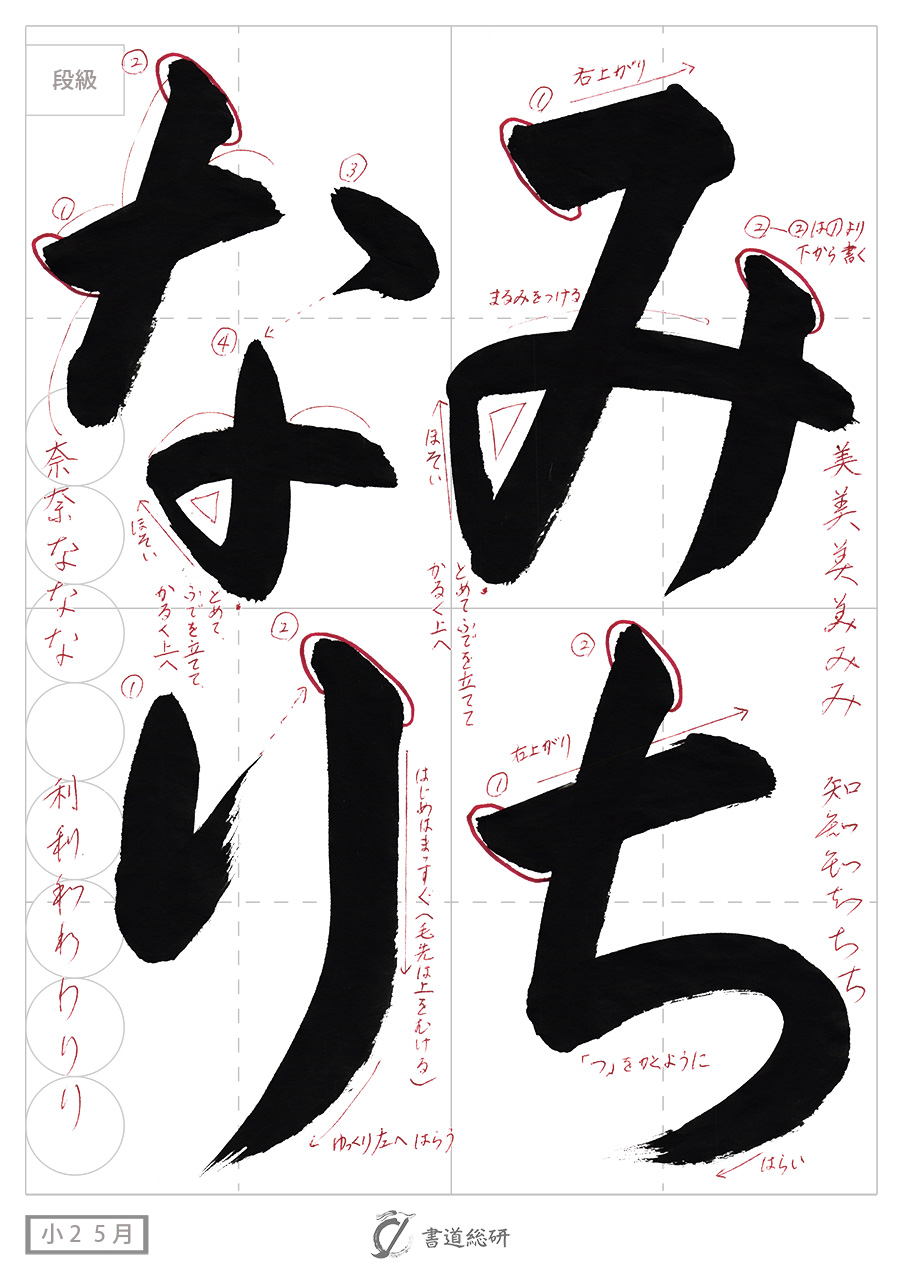 みち
なり
段級
①
右上がり
②―②は①より
下から書く
まるみをつける
ほそい
とめて ふでを立てて
かるく上へ
美美美美みみ
知知知ちちち
②
①
右上がり
「つ」をかくように
はらい
②
①
③
④
ほそい
とめて、
ふでを立てて、
かるく上へ
奈奈なななな
利利利わわりりり
②
①
はじめはまっすぐ(毛先は上をむける)
ゆっくり左へはらう
小25月
書道総研